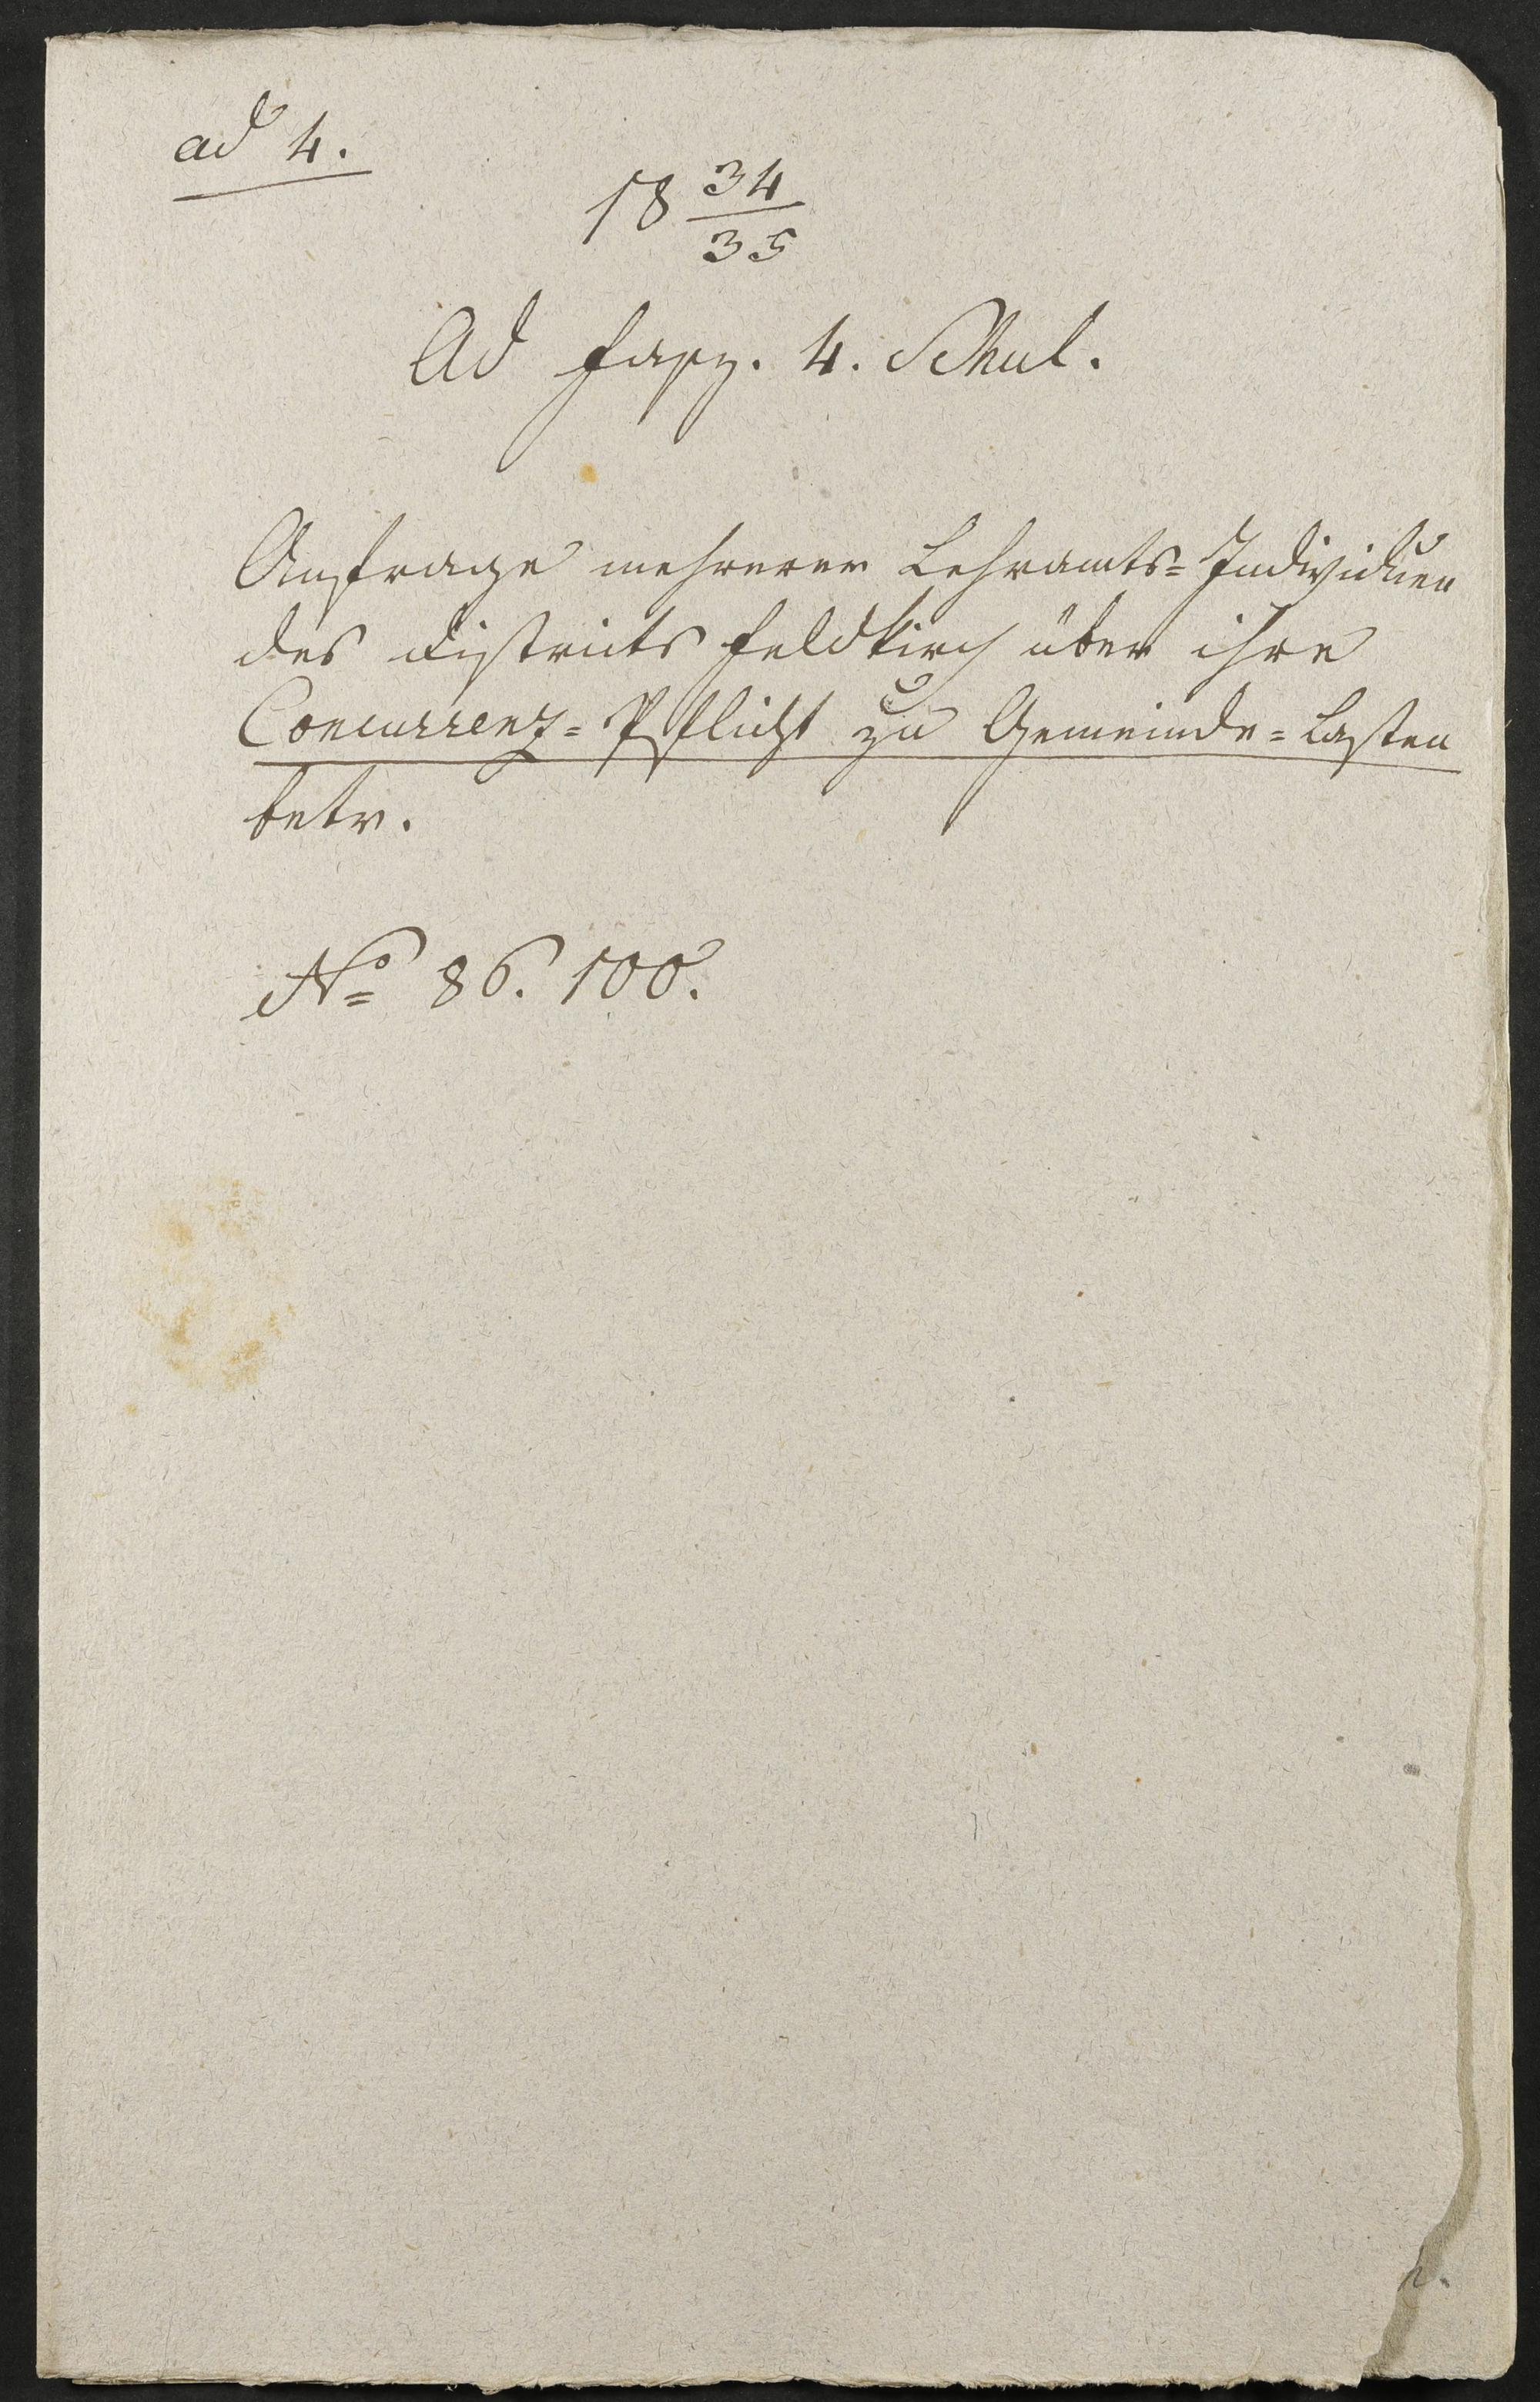 ad 4.
18 34/35
Ad fasz. 4. Schul.
Anfrage mehrerer Lehramts=Individuen
des Districts Feldkirch über ihre
Concurrenz=Pflicht zu Gemeinde=Lasten
betr.
No 86. 100.